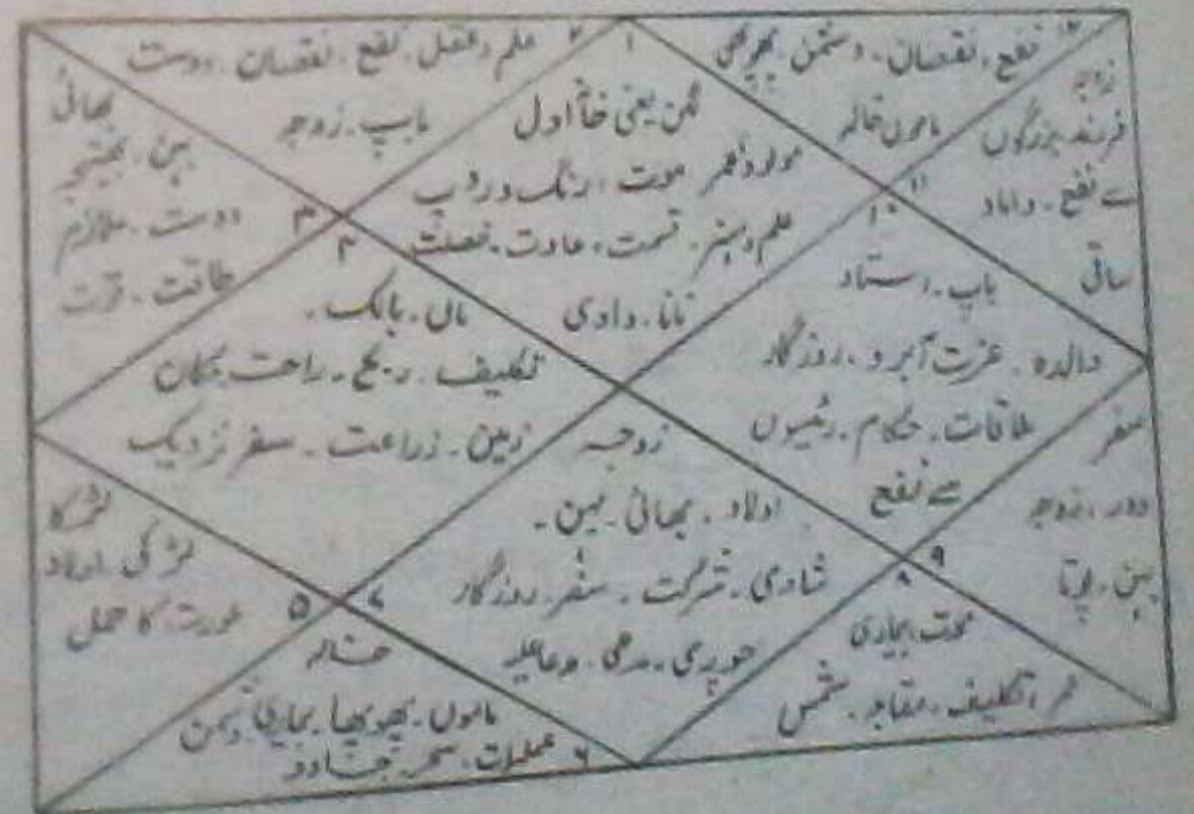 ۱
لگن یعنی خانۂ اول
مولود عمر موت، رنگ و روپ
علم و ہنر۔ قسمت، عادت۔ خصلت
نانا۔ دادی
۲
علم و عقل۔ نفع۔ نقصان۔ دوست
باپ۔ زوجہ
۳
بھائی
بہن۔ بھتیجہ
دوست۔ ملازم
طاقت۔ قوت
۴
مالک۔
تکلیف۔ رنج۔ راحت۔ مکان
زمین۔ زراعت۔ سفر نزدیک
۵
لڑکا
لڑکی اولاد
عورت کا حمل
۶
خالہ
ماموں۔ پھوپھا۔ بیماری دشمن
عملیات۔ سحر۔ جادو
۷
زوجہ
اولاد۔ بھائی۔ بہن۔
شادی۔ شرکت۔ سفر۔ روزگار
چوری۔ مدعی۔ مدعا علیہ
۸
موت۔ بیماری
تکلیف۔ مقابلہ۔
۹
سفر
دور۔ زوجہ
بہن۔ پوتا
۱۰
باپ۔ استاد
والدہ۔ عزت آبرو۔ روزگار
ملاقات۔ حکام۔ رئیسوں
سے نفع
۱۱
زوجہ
فرزند۔ بزرگوں
سے نفع۔ داماد
۱۲
نفع، نقصان۔ دشمن۔ پھوپھی
ماموں خالہ